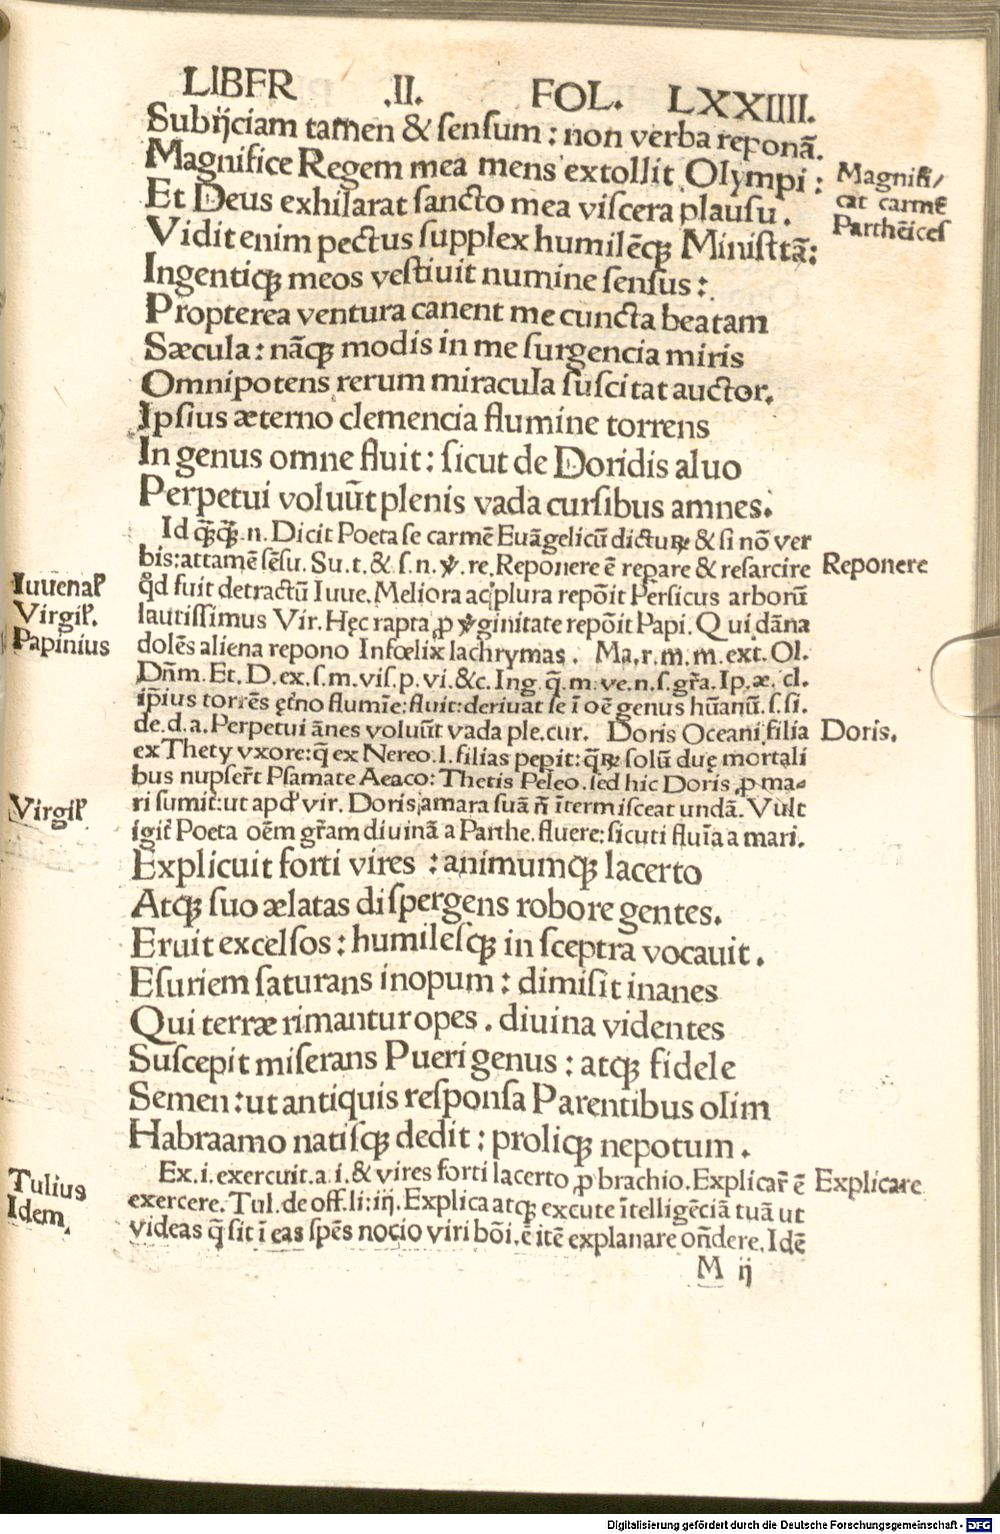 LIBER .II. FOL. LXXIIII.
Subijciam tamen & sensum : non verba reponã.
Magnifice Regem mea mens extollit Olympi :
Magnifi/
cat carmẽ
Parthẽices
Et Deus exhilarat sancto mea viscera plausu .
Vidit enim pectus supplex humilẽq; Ministrã:
Ingentiq; meos vestiuit numine sensus :
Propterea ventura canent me cuncta beatam
Sæcula : nãq; modis in me surgencia miris
Omnipotens rerum miracula suscitat auctor.
Ipsius æterno clemencia flumine torrens
In genus omne fluit : sicut de Doridis aluo
Perpetui voluũt plenis vada cursibus amnes.
Id q̃q̃ .n. Dicit Poeta se carmẽ Euãgelicũ dicturꝝ & si nõ ver
bis: attamẽ sẽsu. Su. t. & s. n. ꝟ. re. Reponere ẽ repare & resarcire
Reponere
Iuuenal̃
Virgil̃.
Papinius
q̃d fuit detractũ Iuue. Meliora ac plura repõit Persicus arborũ
lautissimus Vir. Hęc rapta ꝓ ꝟginitate repõit Papi. Qui dãna
dolẽs aliena repono Infœlix lachrymas . Ma, r. m. m. ext. Ol.
Dñm. Et. D. ex. s. m. vis. p. vi. &c. Ing. q̃. m. ve. n. s. gr̃a. Ip. æ. cl.
ip̃ius torrẽs ęt̃no flumĩe: fluit: deriuat se ĩ oẽ genus hũanũ. s. si.
de. d. a. Perpetui ãnes voluũt vada ple. cur. Doris Oceani filia
Doris.
ex Thety vxore: q̃ ex Nereo .l. filias pepit: q̃ꝝ solũ duę mortali
bus nupser̃t Psamate Aeaco: Thetis Peleo. sed hic Doris ꝓ ma-
Virgil̃
ri sumit: ut apd̃ vir. Doris amara suã ñ ĩtermisceat undã. Vult
igit̃ Poeta oẽm gr̃am diuinã a Parthe. fluere: sicuti fluĩa a mari.
Explicuit forti vires : animumq; lacerto
Atq; suo ælatas dispergens robore gentes.
Eruit excelsos : humilesq; in sceptra vocauit .
Esuriem saturans inopum : dimisit inanes
Qui terræ rimantur opes . diuina videntes
Suscepit miserans Pueri genus : atq; fidele
Semen : ut antiquis responsa Parentibus olim
Habraamo natisq; dedit : proliq; nepotum .
Ex. i. exercuit. a. i. & vires forti lacerto ꝓ brachio. Explicar̃ ẽ
Explicare
Tulius
Idem,
exercere. Tul. de off. li: iij. Explica atq; excute ĩtelligẽciã tuã ut
videas q̃ sit ĩ eas spẽs nocio viri bõi. ẽ itẽ explanare oñdere. Idẽ
M ij
Digitalisierung gefördert durch die Deutsche Forschungsgemeinschaft - DFG